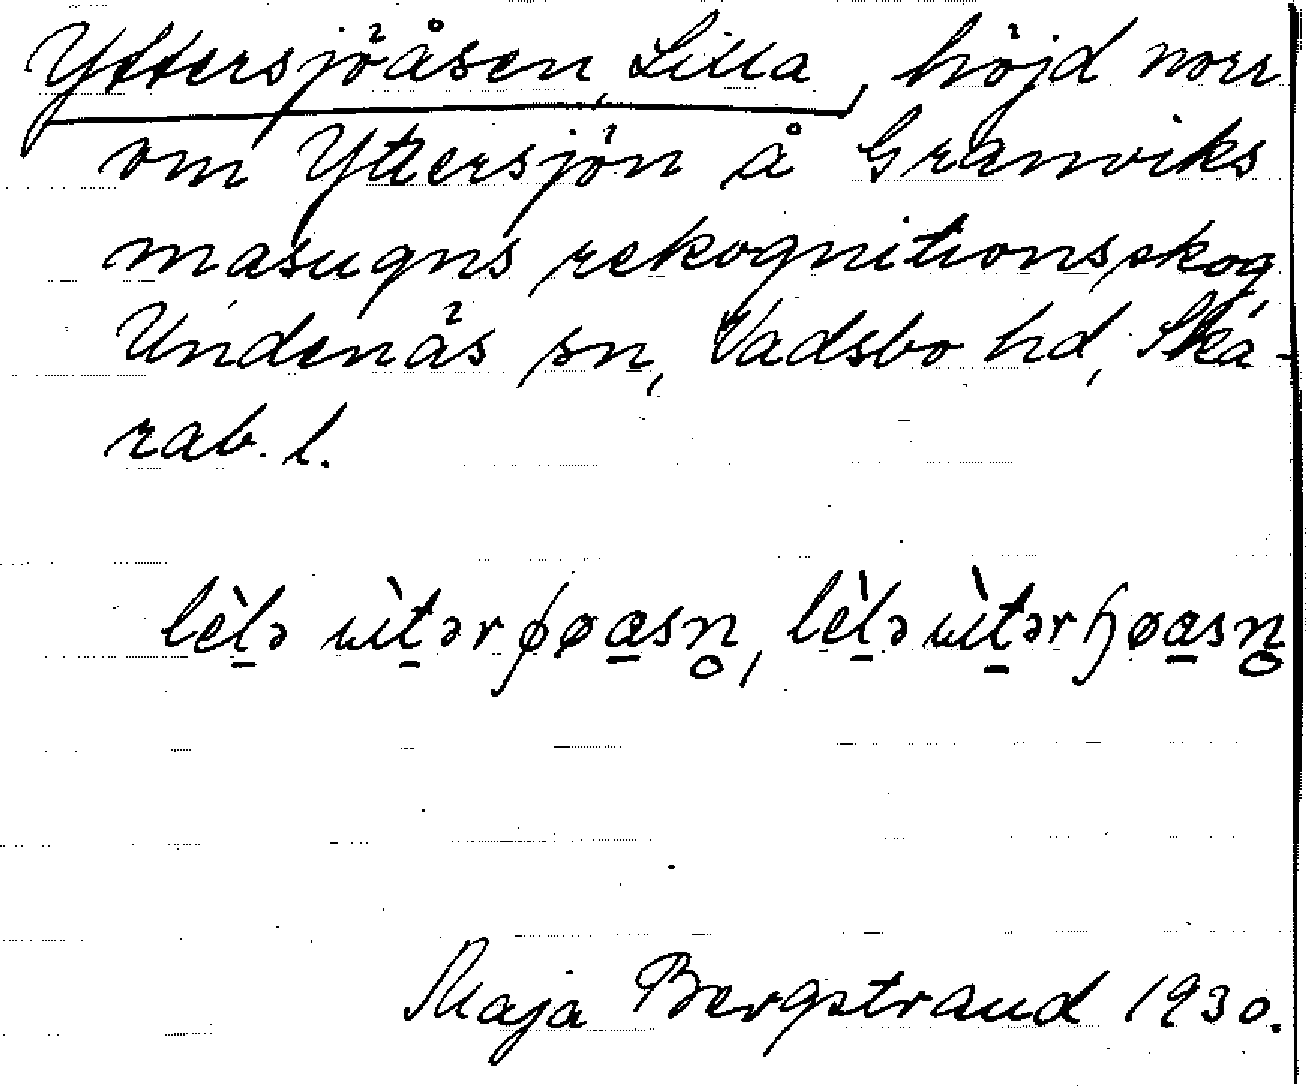 Yttersjöåsen, Lilla, höjd norr
om Yttersjön å Granviks
masugns rekognitionsskog,
Undenäs sn, Vadsbo hd, Ska-
rab. l.
Maja Bergstrand 1930.